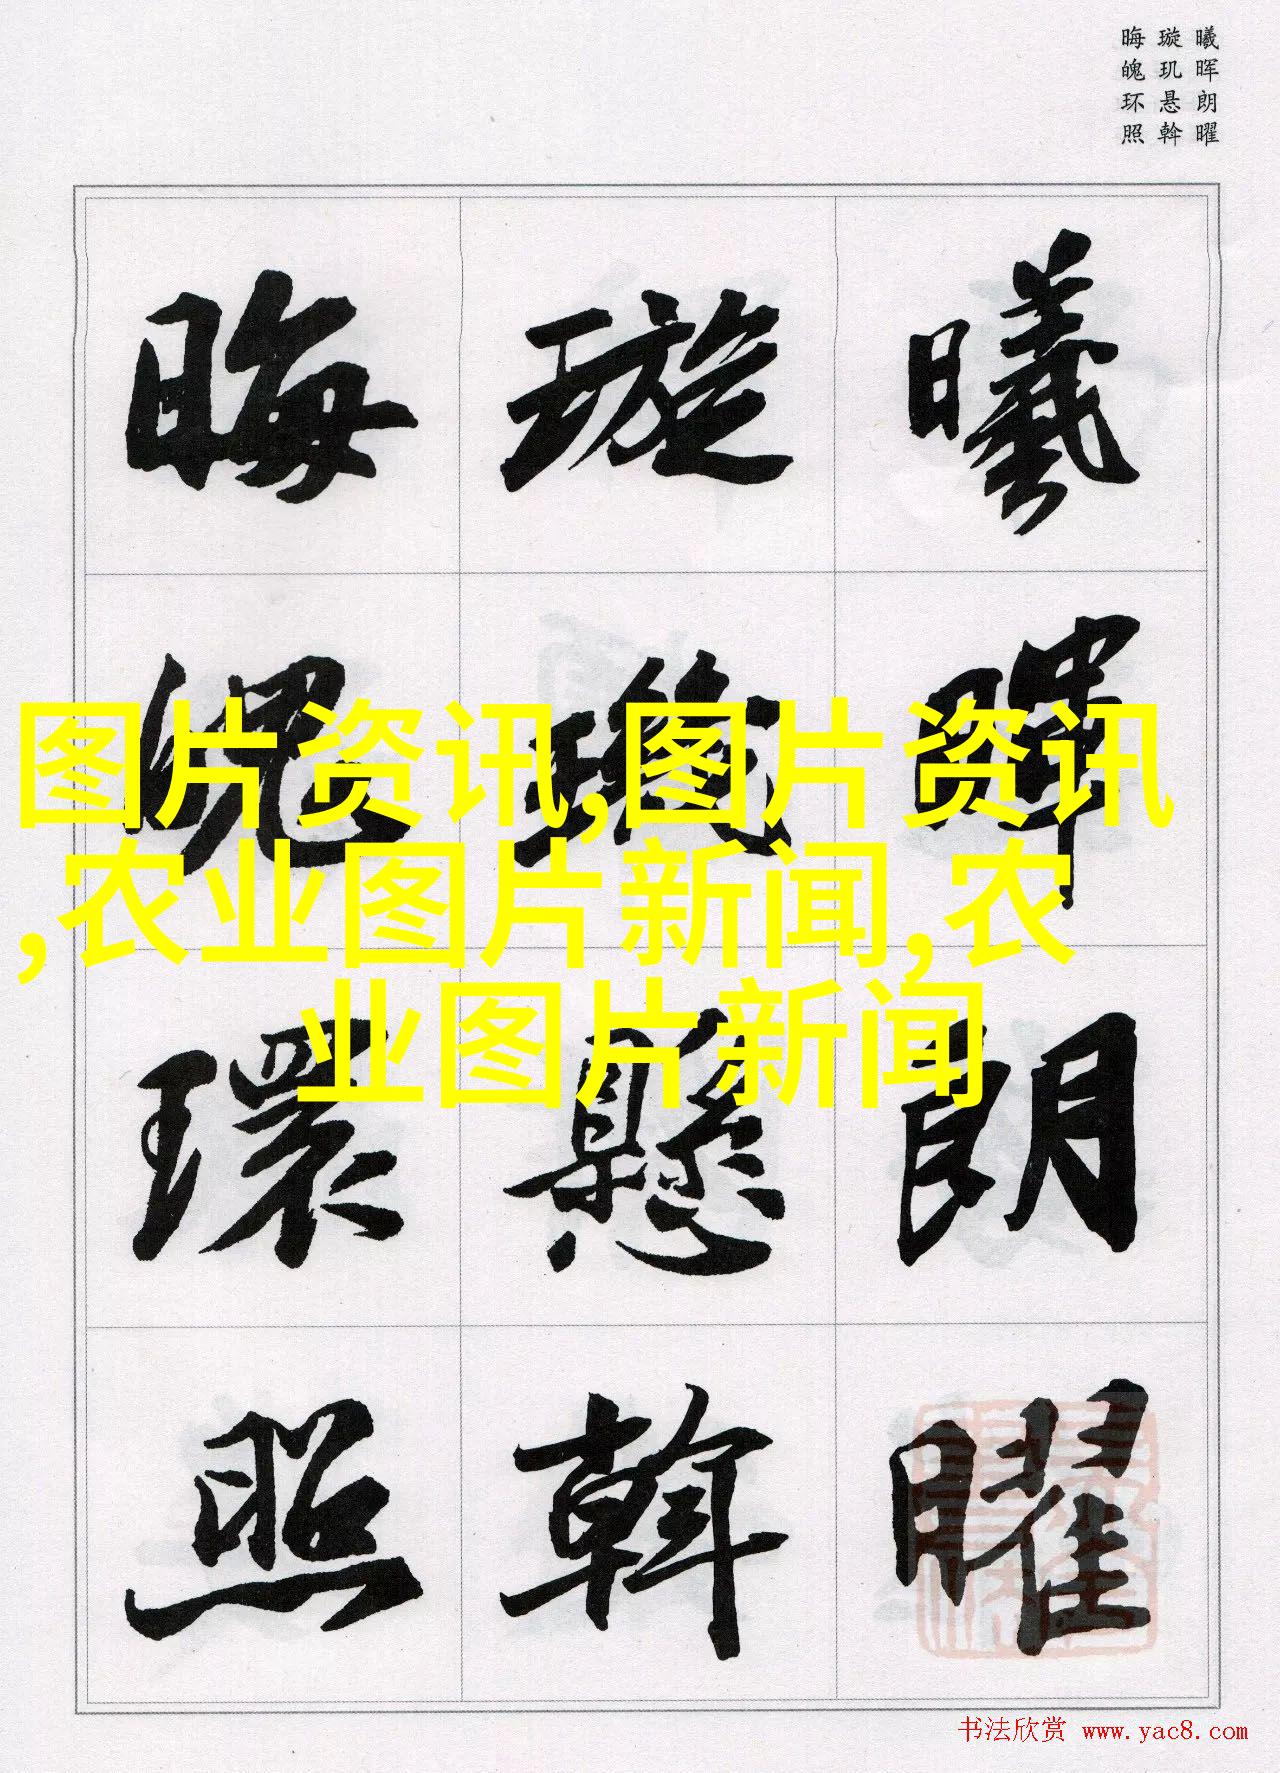 曦晖朗曜
璇玑悬斡
晦魄环照
曦暉朗曜
璇璣懸斡
晦魄環照
图片资讯,图片资讯
,农业图片新闻,农
业图片新闻
书法欣赏 www.yac8.com